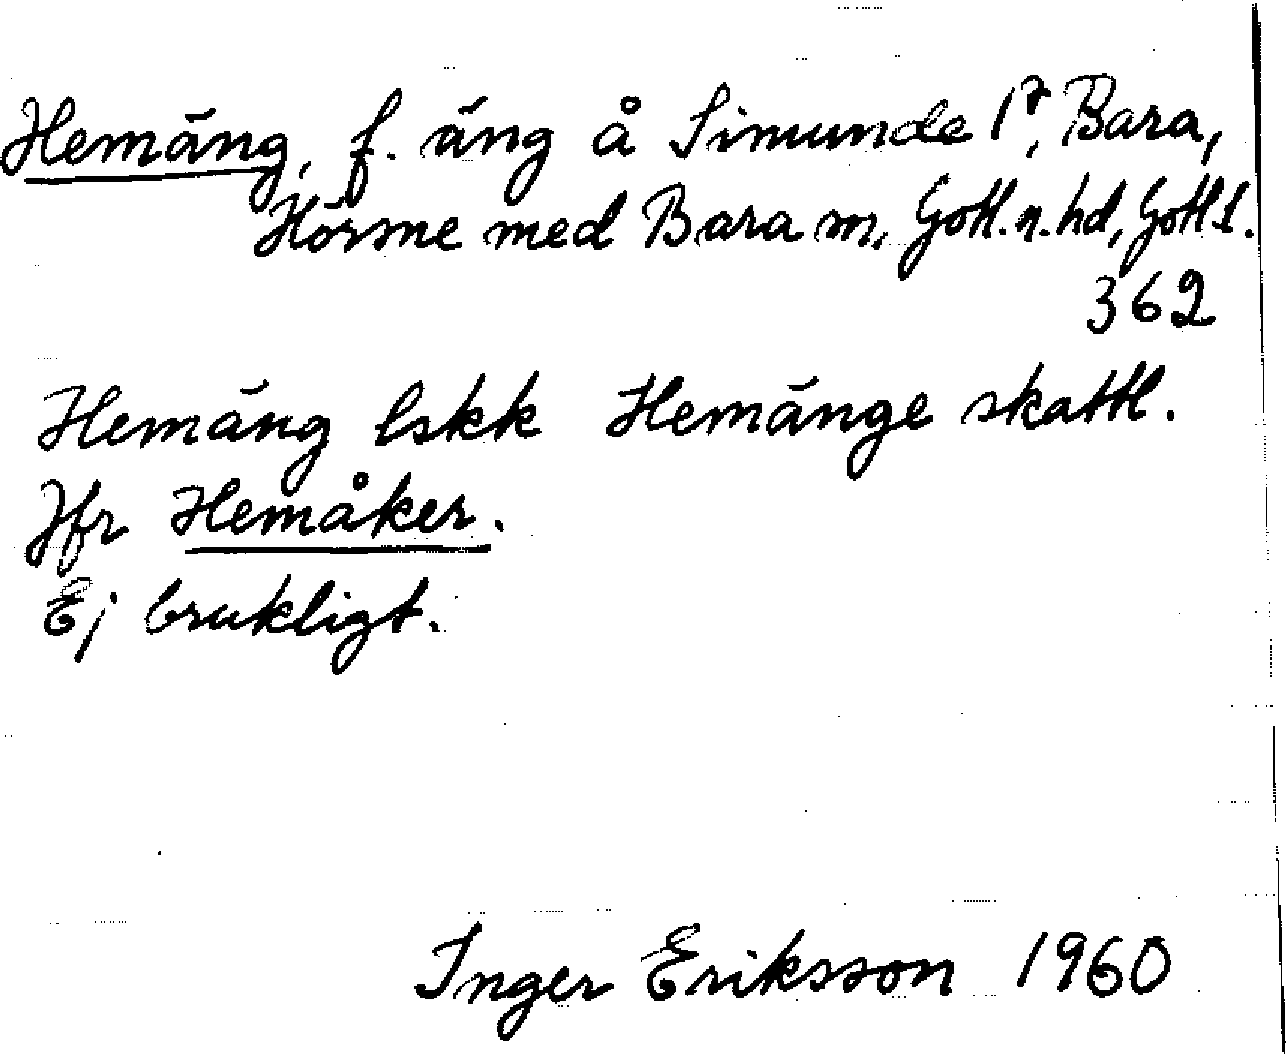 Hemäng, f. äng å Simunde 1⁊, Bara,
Hörsne med Bara sn, Gotl. n. hd, Gotl l.
362
Hemäng lskk Hemänge skattl.
Jfr Hemåker.
Ej brukligt.
Inger Eriksson 1960